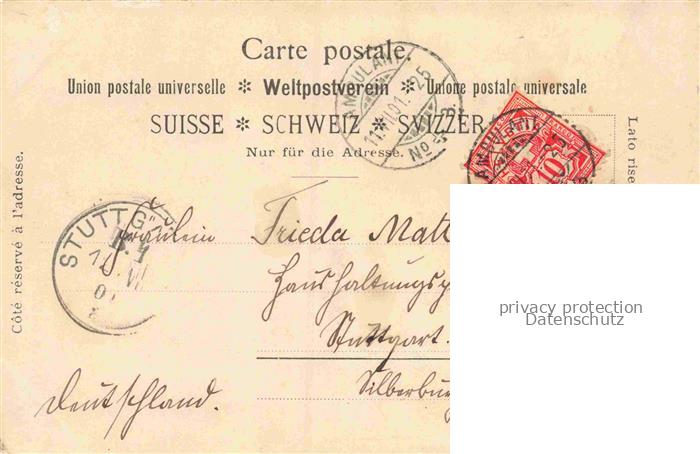 Carte postale.
Union postale universelle ✻ Weltpostverein ✻ Unione postale universale
SUISSE ✻ SCHWEIZ ✻ SVIZZER
Nur für die Adresse.
Côté réservé à l'adresse.
Lato rise
AMBULANT
25
No
AMBULANT
10
STUTTG
Fräulein Frieda Matt
Haushaltungs
Stuttgart.
Silberbur
Deutschland.
privacy protection
Datenschutz